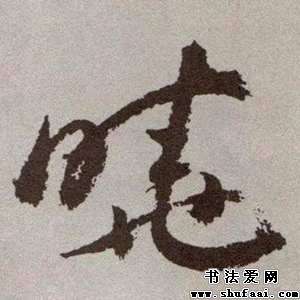 晓
书法爱网
www.shufaai.com